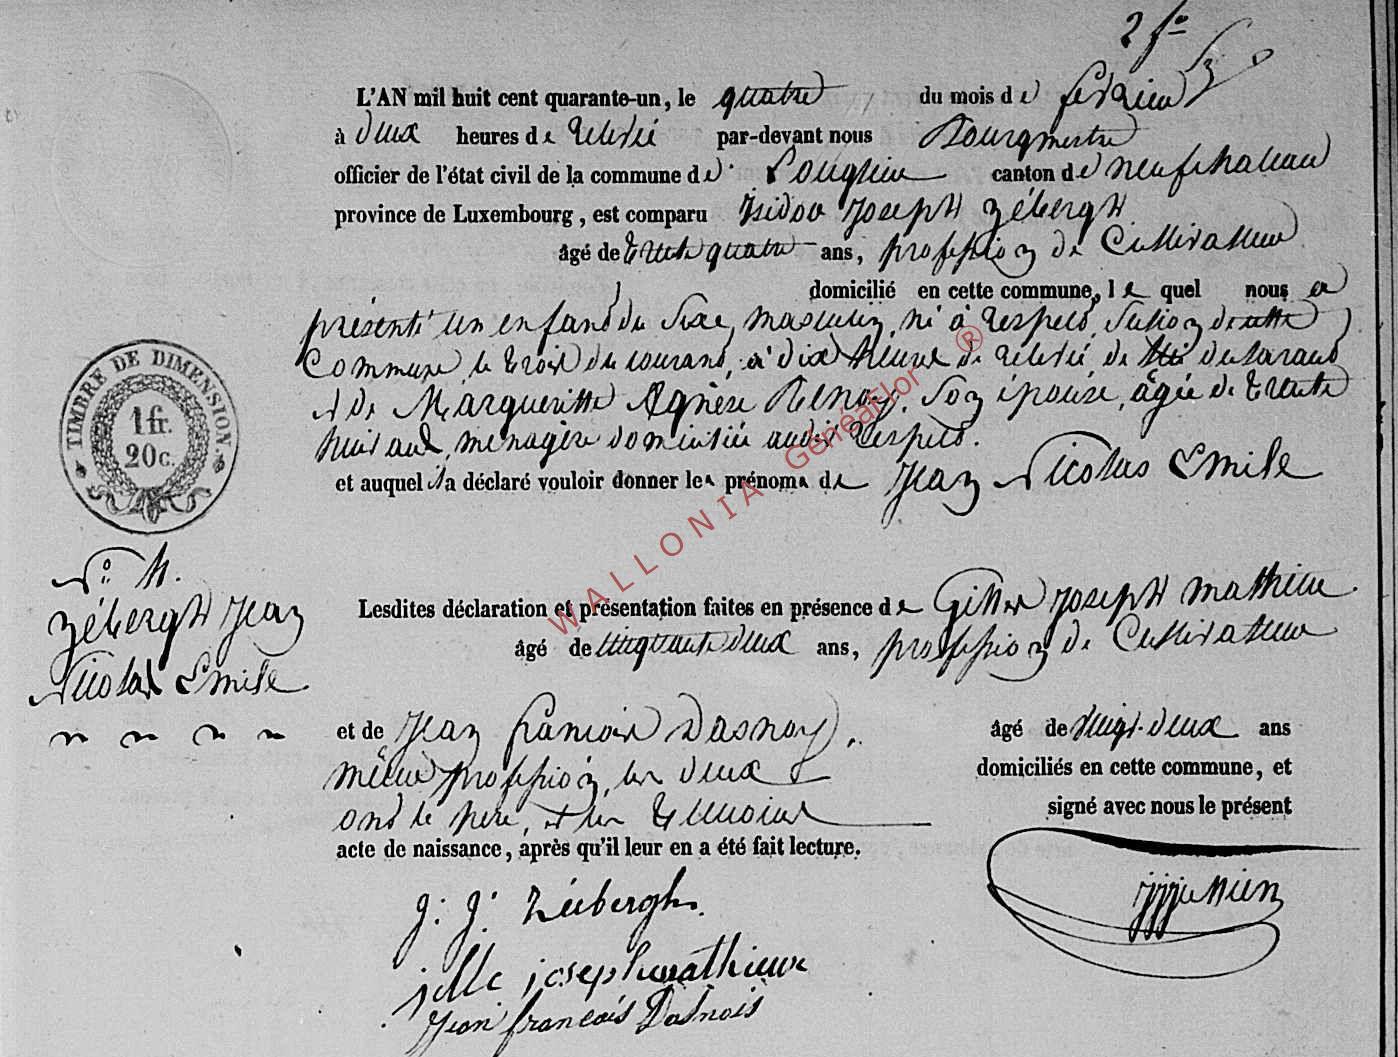 2 fo
L'AN mil huit cent quarante-un, le quatre du mois de fevrier
à deux heures de relevé par-devant nous Bourgmestre
officier de l'état civil de la commune de Longlier canton de neufchateau
province de Luxembourg, est comparu Isidor Joseph Zébergh
âgé de trente quatre ans, profession de Cultivateur
domicilié en cette commune, le quel nous a
présenté un enfant du Sexe masculin, né à respelt, Section de cette
Commune, le trois du courant, à dix heures de relevé, de lui déclarant
et de Margueritte Agnèse Renoy, Son épouse, âgée de trente
huit ans, menagère domiciliée audit respelt.
et auquel il a déclaré vouloir donner les prénoms de Jean Nicolas Emile
TIMBRE DE DIMENSION.
1 fr.
20 c.
No. 4.
Zébergh Jean
Nicolas Emile
Lesdites déclaration et présentation faites en présence de Gilles Joseph Mathieu
âgé de cinquante deux ans, profession de Cultivateur
et de Jean francois Dasnoy, âgé de vingt-deux ans
même profession, les deux domiciliés en cette commune, et
ont le père, et les temoins signé avec nous le présent
acte de naissance, après qu'il leur en a été fait lecture.
J. J. Zébergh.
jille joseph mathieux
Jean francois Dasnois
WALLONIA GénéaFlor ®